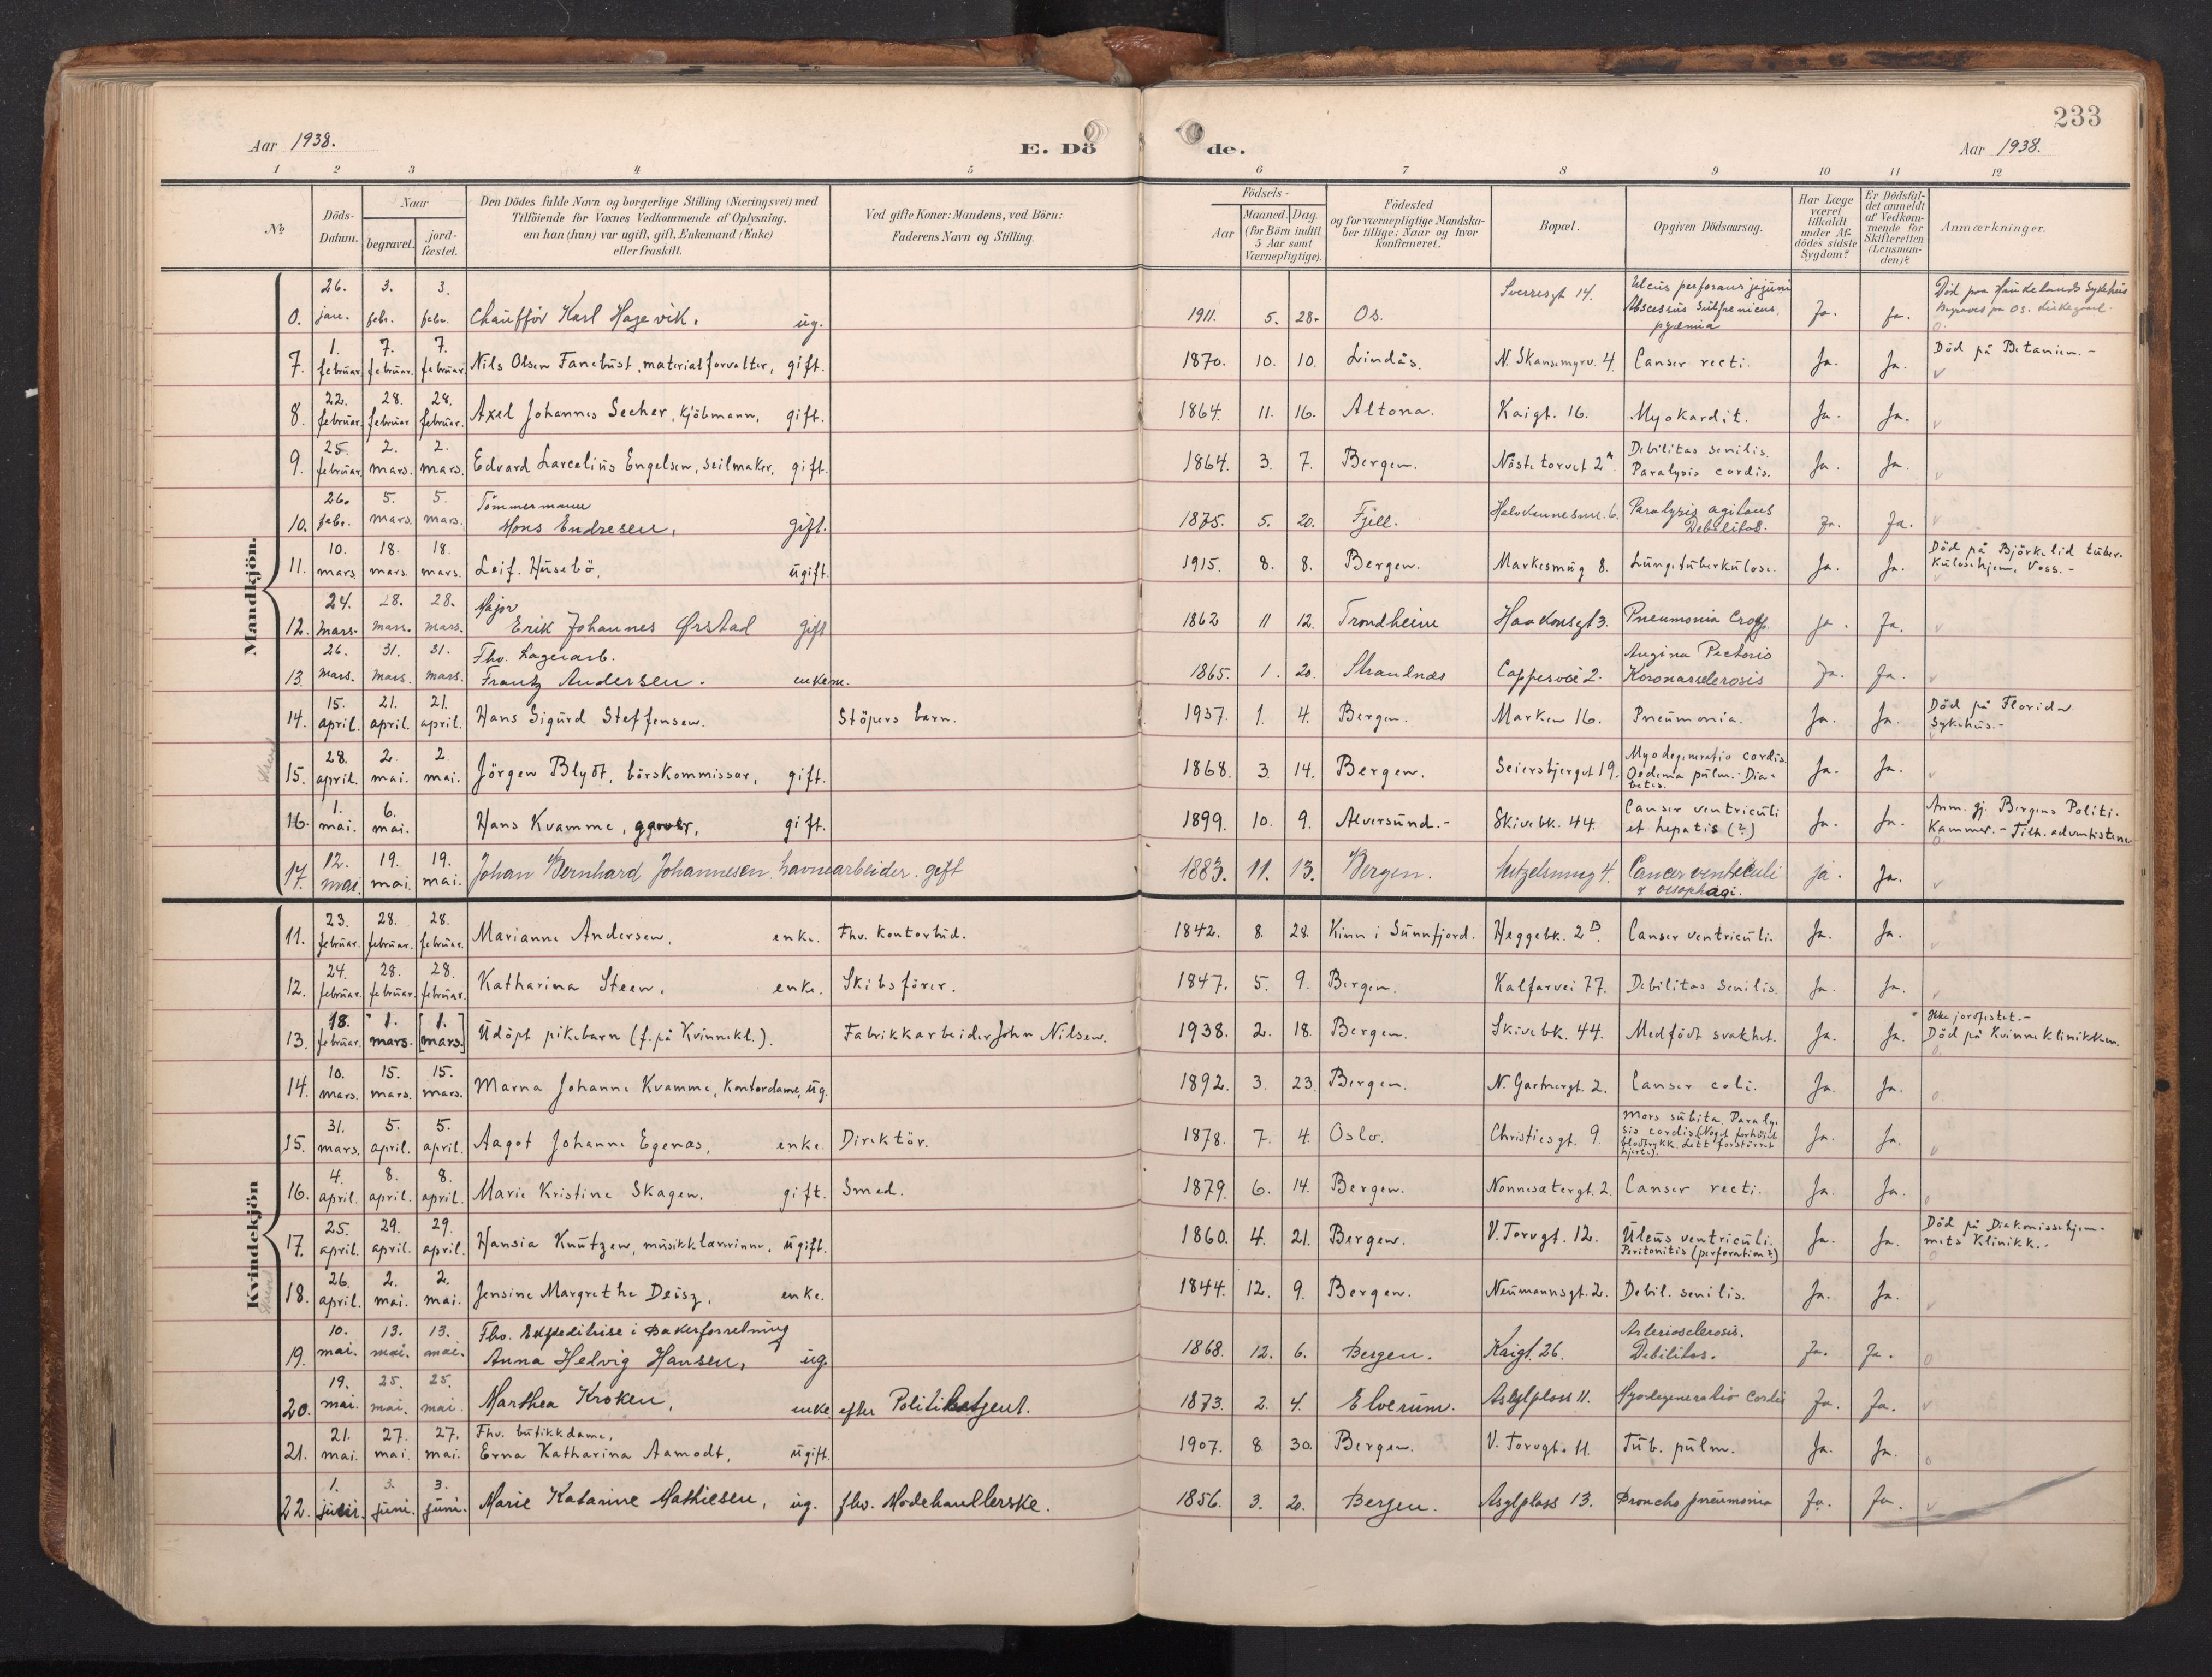 233
Aar 1938.
E. Dö
de.
Aar 1938.
1 2 3 4 5 6 7 8 9 10 11 12
№
Döds-Datum.
Naar
begravet.
jord-fæstet.
Den Dödes fulde Navn og borgerlige Stilling (Næringsvei) med
Tilföiende for Voxnes Vedkommende af Oplysning,
om han (hun) var ugift, gift, Enkemand (Enke)
eller fraskilt.
Ved gifte Koner: Mandens, ved Börn:
Faderens Navn og Stilling.
Födsels-
Aar
Maaned. Dag.
(for Börn indtil
5 Aar samt
Værnepligtige).
Födested
og for værnepligtige Mandska-
ber tillige: Naar og hvor
konfirmeret.
Bopæl.
Opgiven Dödsaarsag.
Har Læge
været
tilkaldt
under Af-
dödes sidste
Sygdom?
Er Dödsfal-
det anmeldt
af Vedkom-
mende for
Skifteretten
(Lensman-
den)?
Anmærkninger.
Mandkjön.
0. 26. jan. 3. febr. 3. febr. Chaufför Karl Hagevik, ug. 1911. 5. 28. Os. Sverresgt 14. Ulcus perforans jejuni Abscessus subfrenicus, pyæmia Ja. Ja. Död paa Haukelands Sykehus Begravet på Os. kirkegaard. o.
7. 1. februar. 7. februar. 7. februar. Nils Olsen Fanebust, materialforvalter, gift. 1870. 10. 10. Lindås. N. Skansemyrv. 4. Canser recti. Ja. Ja. Död på Betanien. - v
8. 22. februar. 28. februar 28. februar. Axel Johannes Secher, kjöbmann, gift. 1864. 11. 16. Altona. Kaigt. 16. Myokardit. Ja. Ja. v
9. 25. februar. 2. mars. 2. mars. Edvard Larcelius Engelsen, seilmaker, gift. 1864. 3. 7. Bergen. Nöstetorvet 2A. Debilitas senilis. Paralysis cordis. Ja. Ja. v
10. 26. febr. 5. mars. 5. mars. Tömmermann Mons Endresen, gift. 1875. 5. 20. Fjell. 6. Paralysis agitans Debilitas. Ja. Ja. v
11. 10. mars 18. mars 18. mars. Leif. Husebö, ugift. 1915. 8. 8. Bergen. Markesmug 8. Lungetuberkulose. Ja. Ja. Död på Björkelid tuber-kulosehjem, Voss. - v
12. 24. mars. 28. mars. 28. mars. Major Erik Johannes Ørstad gift 1862 11 12. Trondheim Haakonsgt 3. Pneumonia Croup. Ja. Ja. v
13. 26. mars. 31. mars. 31. mars. Fhv. Lagerarb. Frantz Andersen. enkem. 1865. 1. 20. Strandnæs Cappesvei 2. Angina Pectoris Koronarsclerosis Ja. Ja. v
14. 15. april. 21. april. 21. april. Hans Sigurd Steffensen. Stöpers barn. 1937. 1. 4. Bergen. Marken 16. Pneumonia. Ja. Ja. Död på Florida Sykehus. - v
15. 28. april. 2. mai. 2. mai. Jörgen Blydt, börskommissær, gift. 1868. 3. 14. Bergen. Seiersbjerget 19. Myodegeneratio cordis. Oedema pulm. - Dia-betes. Ja. Ja. v
16. 1. mai. 6. mai. Hans Kvamme, graver, gift. 1899. 10. 9. Alversund. - Skivebk. 44. Canser ventriculi et hepatis (?) Ja. Ja. Anm. gj. Bergens Politi-kammer. - Tilh. adventistene. o
17. 12. mai. 19. mai. 19. mai. Johan Bernhard Johannesen, havnearbeider. gift 1883. 11. 13. Bergen. Mutzelsmug 4. Cancer ventriculi & oesophagi. ja. Ja. v
Kvindekjön
11. 23. februar. 28. februar. 28. februar. Marianne Andersen, enke. Fhv. kontorbud. 1842. 8. 28. Kinn i Sunnfjord. Heggebk. 2B. Canser ventriculi. Ja. Ja. v
12. 24. februar. 28. februar. 28. februar. Katharina Steen, enke. Skibsförer. 1847. 5. 9. Bergen. Kalfarvei 77. Debilitas senilis. Ja. Ja. v
13. 18. februar. 1. mars. [1. mars.] Udöpt pikebarn (f. på Kvinnekl.). Fabrikkarbeider John Nilsen. 1938. 2. 18. Bergen. Skivebk. 44. Medfödt svakhet. Ja. Ja. Ikke jordfestet. - Död på Kvinneklinikken. o.
14. 10. mars. 15. mars. 15. mars. Marna Johanne Kvamme, kontordame, ug. 1892. 3. 23. Bergen. N. Gartnergt. 2. Canser coli. Ja. Ja. o.
15. 31. mars. 5. april. 5. april. Aagot Johanne Egenæs, enke. Direktör. 1878. 7. 4. Oslo. Christiesgt. 9. Mors subita. Paraly-sis cordis (Noget forhöiet blodtrykk. Lett forstörret hjerte). Ja. Ja. v
16. 4. april. 8. april. 8. april. Marie Kristine Skagen, gift. Smed. 1879. 6. 14. Bergen. Nonnesætergt. 2. Canser recti. Ja. Ja. o
17. 25. april. 29. april. 29. april. Hansia Knutzen, musikklærerinne, ugift. 1860. 4. 21. Bergen. V. Torvgt. 12. Ulcus ventriculi. Peritonitis (perforation?) Ja. Ja. Död på Diakonissehjem-mets Klinikk. - o
18. 26. april. 2. mai. 2. mai. Jensine Margrethe Deisz, enke. 1844. 12. 9. Bergen. Neumannsgt. 2. Debil. senilis. Ja. Ja. v
19. 10. mai. 13. mai. 13. mai. Fhv. Expeditrise i Bakerforretning Anna Helvig Hansen, ug. 1868. 12. 6. Bergen. Kaigt. 26. Arteriosclerosis. Debilitas. Ja. Ja. o
20. 19. mai. 25. mai. 25. mai. Marthea Kroken, enke efter Politibetjent. 1873. 2. 4. Elverum. Asylplass 11. Myodegeneratio Cordis Ja. Ja. v
21. 21. mai. 27. mai. 27. mai. Fhv. butikkdame, Erna Katharina Aamodt, ugift. 1907. 8. 30. Bergen. V. Torvgt. 11. Tub. pulm. Ja. Ja. o
22. 1. juni. 3. juni. 3. juni. Marie Katarine Mathiesen, ug. fhv. Modehandlerske. 1856. 3. 20. Bergen. Asylplass 13. Broncho pneumonia Ja. Ja. v